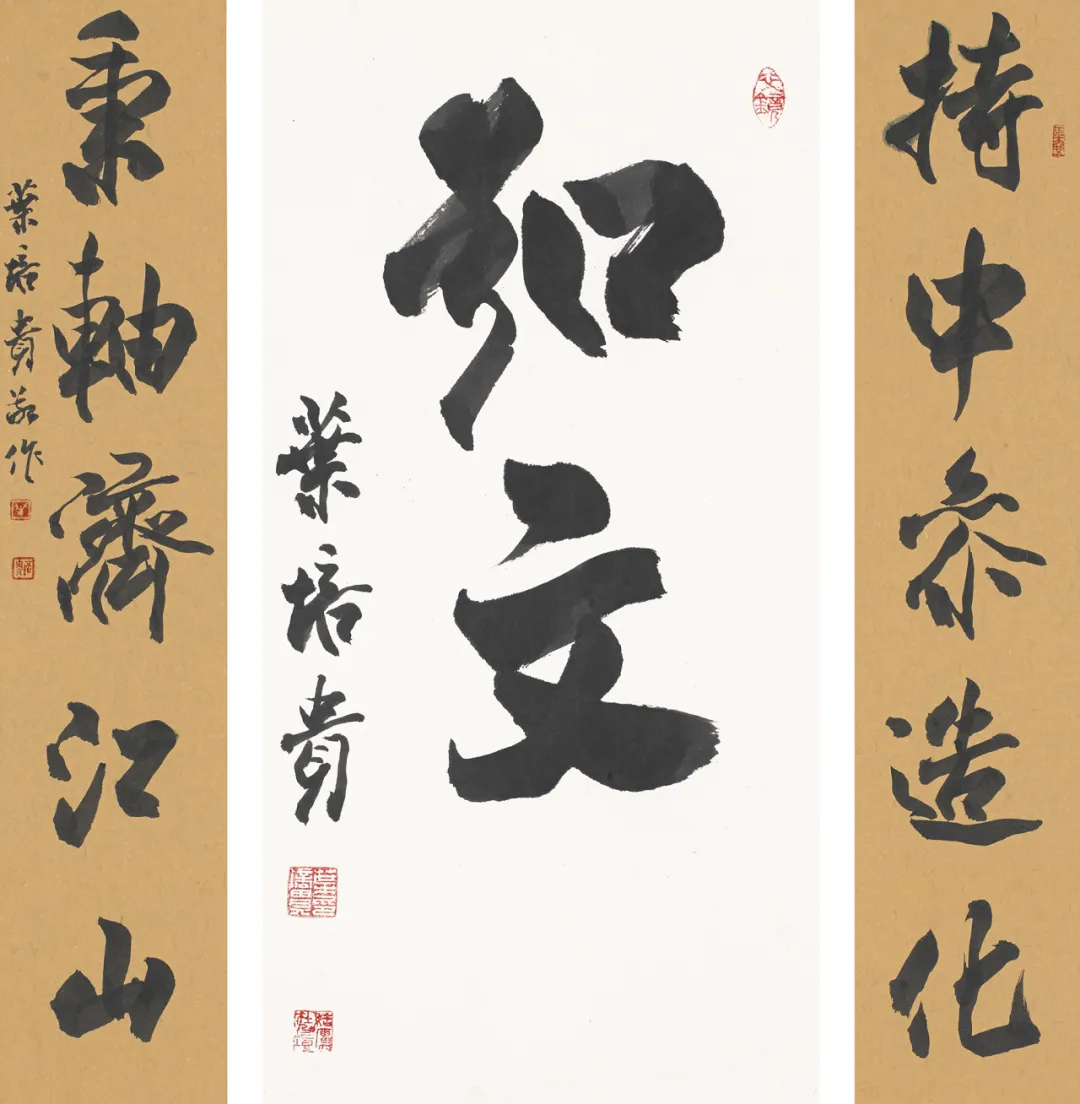 持中参造化
知文
葉培貴
秉軸濟江山
葉培貴敬作